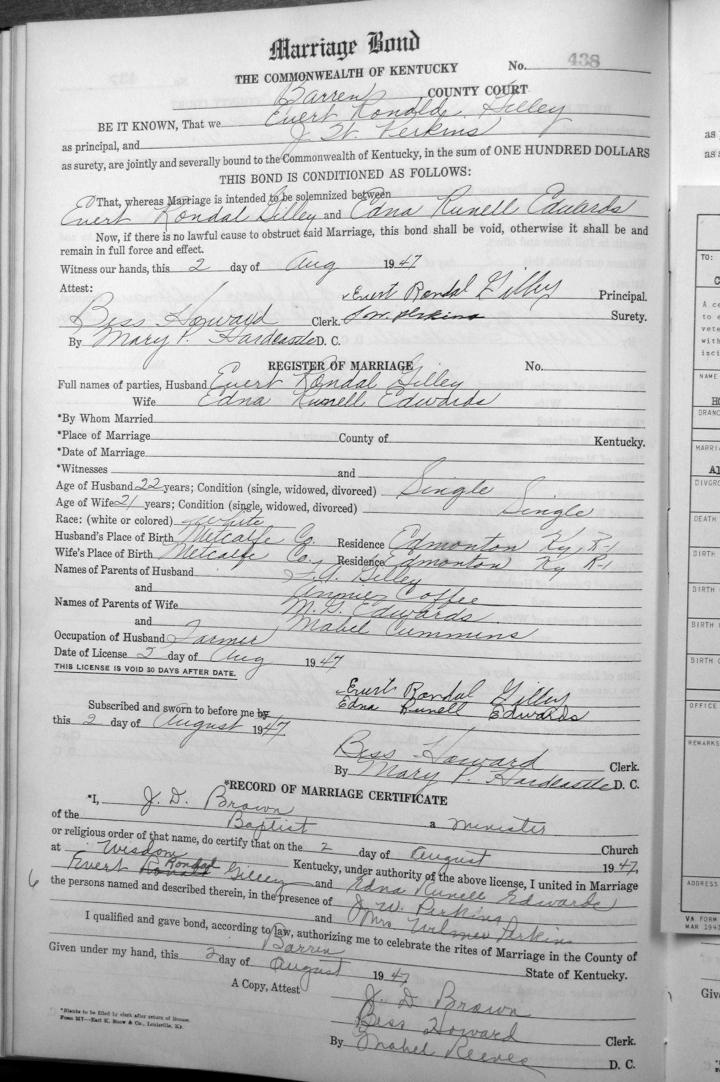 Marriage Bond
No. 438
THE COMMONWEALTH OF KENTUCKY
Barren COUNTY COURT
BE IT KNOWN, That we Evert Ronald Gilley
as principal, and J. W. Perkins
as surety, are jointly and severally bound to the Commonwealth of Kentucky, in the sum of ONE HUNDRED DOLLARS
THIS BOND IS CONDITIONED AS FOLLOWS:
That, whereas Marriage is intended to be solemnized between
Evert Rondal Gilley and Edna Runell Edwards
Now, if there is no lawful cause to obstruct said Marriage, this bond shall be void, otherwise it shall be and
remain in full force and effect.
Witness our hands, this 2 day of Aug 1947
Attest: Evert Rondal Gilley Principal.
Bess Howard Clerk. J.W. Perkins Surety.
By Mary P. Hardcastle D. C.
REGISTER OF MARRIAGE No.
Full names of parties, Husband Evert Rondal Gilley
Wife Edna Runell Edwards
*By Whom Married
*Place of Marriage County of Kentucky.
*Date of Marriage
*Witnesses and
Age of Husband 22 years; Condition (single, widowed, divorced) Single
Age of Wife 21 years; Condition (single, widowed, divorced) Single
Race: (white or colored) White
Husband's Place of Birth Metcalfe Co. Residence Edmonton Ky, R-1
Wife's Place of Birth Metcalfe Co. Residence Edmonton Ky R-1
Names of Parents of Husband Gilley
and Annie Coffee
Names of Parents of Wife M. T. Edwards
and Mabel Cummens
Occupation of Husband Farmer
Date of License 2 day of Aug 1947
THIS LICENSE IS VOID 30 DAYS AFTER DATE.
Evert Rondal Gilley
Edna Runell Edwards
Subscribed and sworn to before me by
this 2 day of August 1947
Bess Howard Clerk.
By Mary P. Hardcastle D. C.
*RECORD OF MARRIAGE CERTIFICATE
*I, J. D. Brown a minister
of the Baptist Church
or religious order of that name, do certify that on the 2 day of August 1947,
at Wisdom Kentucky, under authority of the above license, I united in Marriage
Evert Ronald Rondal Gilley and Edna Runell Edwards
6
the persons named and described therein, in the presence of J. W. Perkins
and Mrs. Wilmer Perkins
I qualified and gave bond, according to law, authorizing me to celebrate the rites of Marriage in the County of
Barren State of Kentucky.
Given under my hand, this 2 day of August 1947
J. D Brown
A Copy, Attest Bess Howard Clerk.
By Mabel Reeves D. C.
*Blanks to be filled by clerk after return of license.
as
as s
TO:
C
A ce
to e
vete
with
inci
NAME
HO
BRANC
MARRI
Al
DIVORC
DEATH
BIRTH
BIRTH (
BIRTH (
BIRTH C
OFFICE
REMARKS
ADDRESS
VA FORM
MAR 194
Give